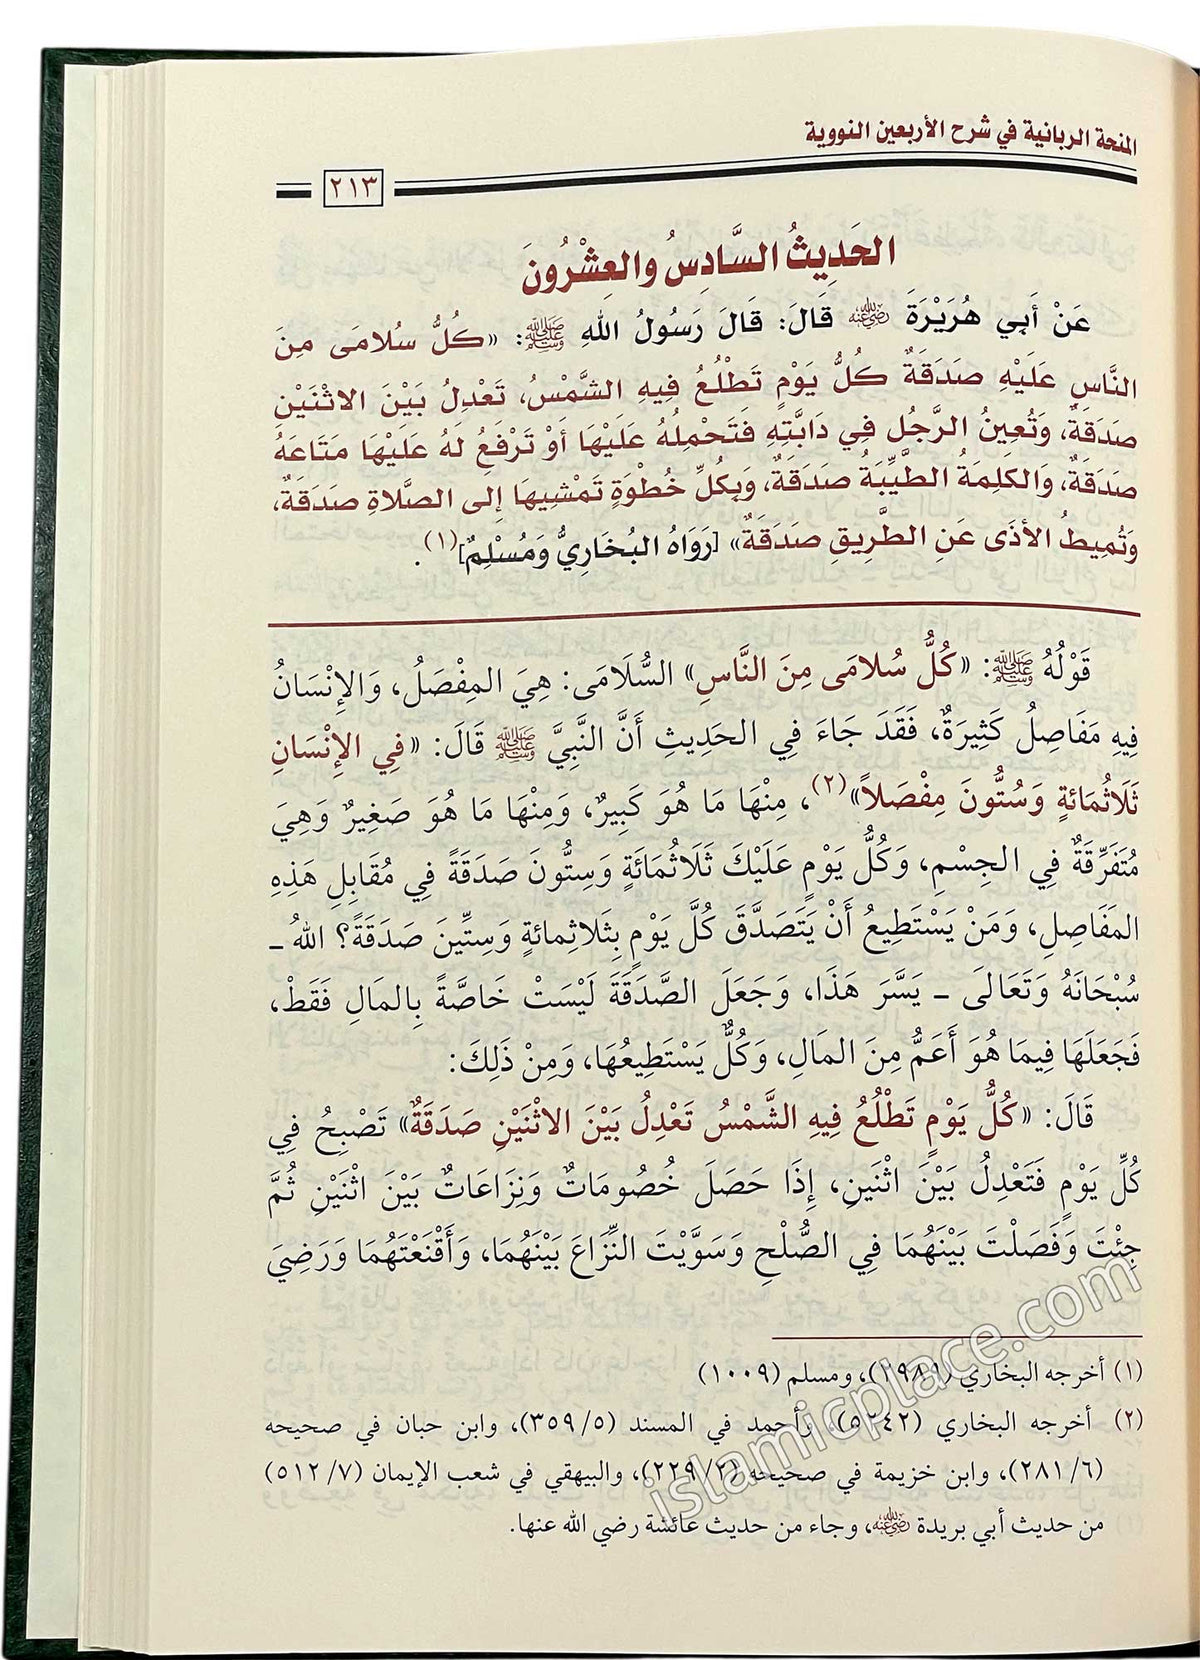 المنحة الربانية في شرح الأربعين النووية
٢١٣
الحَدِيثُ السَّادِسُ والعِشْرُونَ
عَنْ أَبِي هُرَيْرَةَ رضي الله عنه قَالَ: قَالَ رَسُولُ اللهِ ﷺ: «كُلُّ سُلامَى مِنَ
النَّاسِ عَلَيْهِ صَدَقَةٌ كُلُّ يَوْمٍ تَطْلُعُ فِيهِ الشَّمْسُ، تَعْدِلُ بَيْنَ الاثْنَيْنِ
صَدَقَةٌ، وَتُعِينُ الرَّجُل فِي دَابَّتِهِ فَتَحْمِلُهُ عَلَيْهَا أوْ تَرْفَعُ لهُ عَليْهَا مَتَاعَهُ
صَدَقَةٌ، وَالكلِمَةُ الطَّيِّبَةُ صَدَقَةٌ، وَبِكُلِّ خُطْوَةٍ تَمْشِيهَا إِلى الصَّلاةِ صَدَقَةٌ،
وَتُمِيطُ الأذَى عَنِ الطَّرِيقِ صَدَقَةٌ» [رَوَاهُ البُخَارِيُّ وَمُسْلِمٌ](١) .
قَوْلُهُ ﷺ: «كُلُّ سُلامَى مِنَ النَّاسِ» السُّلَامَى: هِيَ المِفْصَلُ، وَالإِنْسَانُ
فِيهِ مَفَاصِلُ كَثِيرَةٌ، فَقَدَ جَاءَ فِي الحَدِيثِ أَنَّ النَّبِيَّ ﷺ قَالَ: «فِي الإِنْسَانِ
ثَلَاثُمَائَةٍ وَسُتُّونَ مِفْصَلاً»(٢)، مِنْهَا مَا هُوَ كَبِيرٌ، وَمِنْهَا مَا هُوَ صَغِيرٌ وَهِيَ
مُتَفَرِّقَةٌ فِي الجِسْمِ، وَكُلُّ يَوْمٍ عَلَيْكَ ثَلَاثُمَائَةٍ وَسِتُّونَ صَدَقَةً فِي مُقَابِلِ هَذِهِ
المَفَاصِلِ، وَمَنْ يَسْتَطِيعُ أَنْ يَتَصَدَّقَ كُلَّ يَوْمٍ بِثَلاثِمائَةٍ وَسِتِّينَ صَدَقَةً؟ اللهُ ـ
سُبْحَانَهُ وَتَعَالَى ـ يَسَّرَ هَذَا، وَجَعَلَ الصَّدَقَةَ لَيْسَتْ خَاصَّةً بِالمَالِ فَقَطْ،
فَجَعَلَهَا فِيمَا هُوَ أَعَمُّ مِنَ المَالِ، وَكُلٌّ يَسْتَطِيعُهَا، وَمِنْ ذَلِكَ:
قَالَ: «كُلُّ يَوْمٍ تَطْلُعُ فِيهِ الشَّمْسُ تَعْدِلُ بَيْنَ الاثْنَيْنِ صَدَقَةٌ» تَصْبِحُ فِي
كُلِّ يَوْمٍ فَتَعْدِلُ بَيْنَ اثْنَينِ، إِذَا حَصَلَ خُصُومَاتٌ وَنِزَاعَاتٌ بَيْنَ اثْنَيْنِ ثُمَّ
جِئْتَ وَفَصَلْتَ بَيْنَهُمَا فِي الصُّلْحِ وَسَوَّيْتَ النِّزَاعَ بَيْنَهُمَا، وَأَقْنَعْتَهُمَا وَرَضِيَ
(١) أخرجه البخاري (٢٩٨٩)، ومسلم (١٠٠٩)
(٢) أخرجه البخاري (٥٢٤٢)، وأحمد في المسند (٣٥٩/٥)، وابن حبان في صحيحه
(٢٨١/٦)، وابن خزيمة في صحيحه (٢٢٩/٢)، والبيهقي في شعب الإيمان (٥١٢/٧)
من حديث أبي بريدة رضي الله عنه، وجاء من حديث عائشة رضي الله عنها.
islamicplace.com